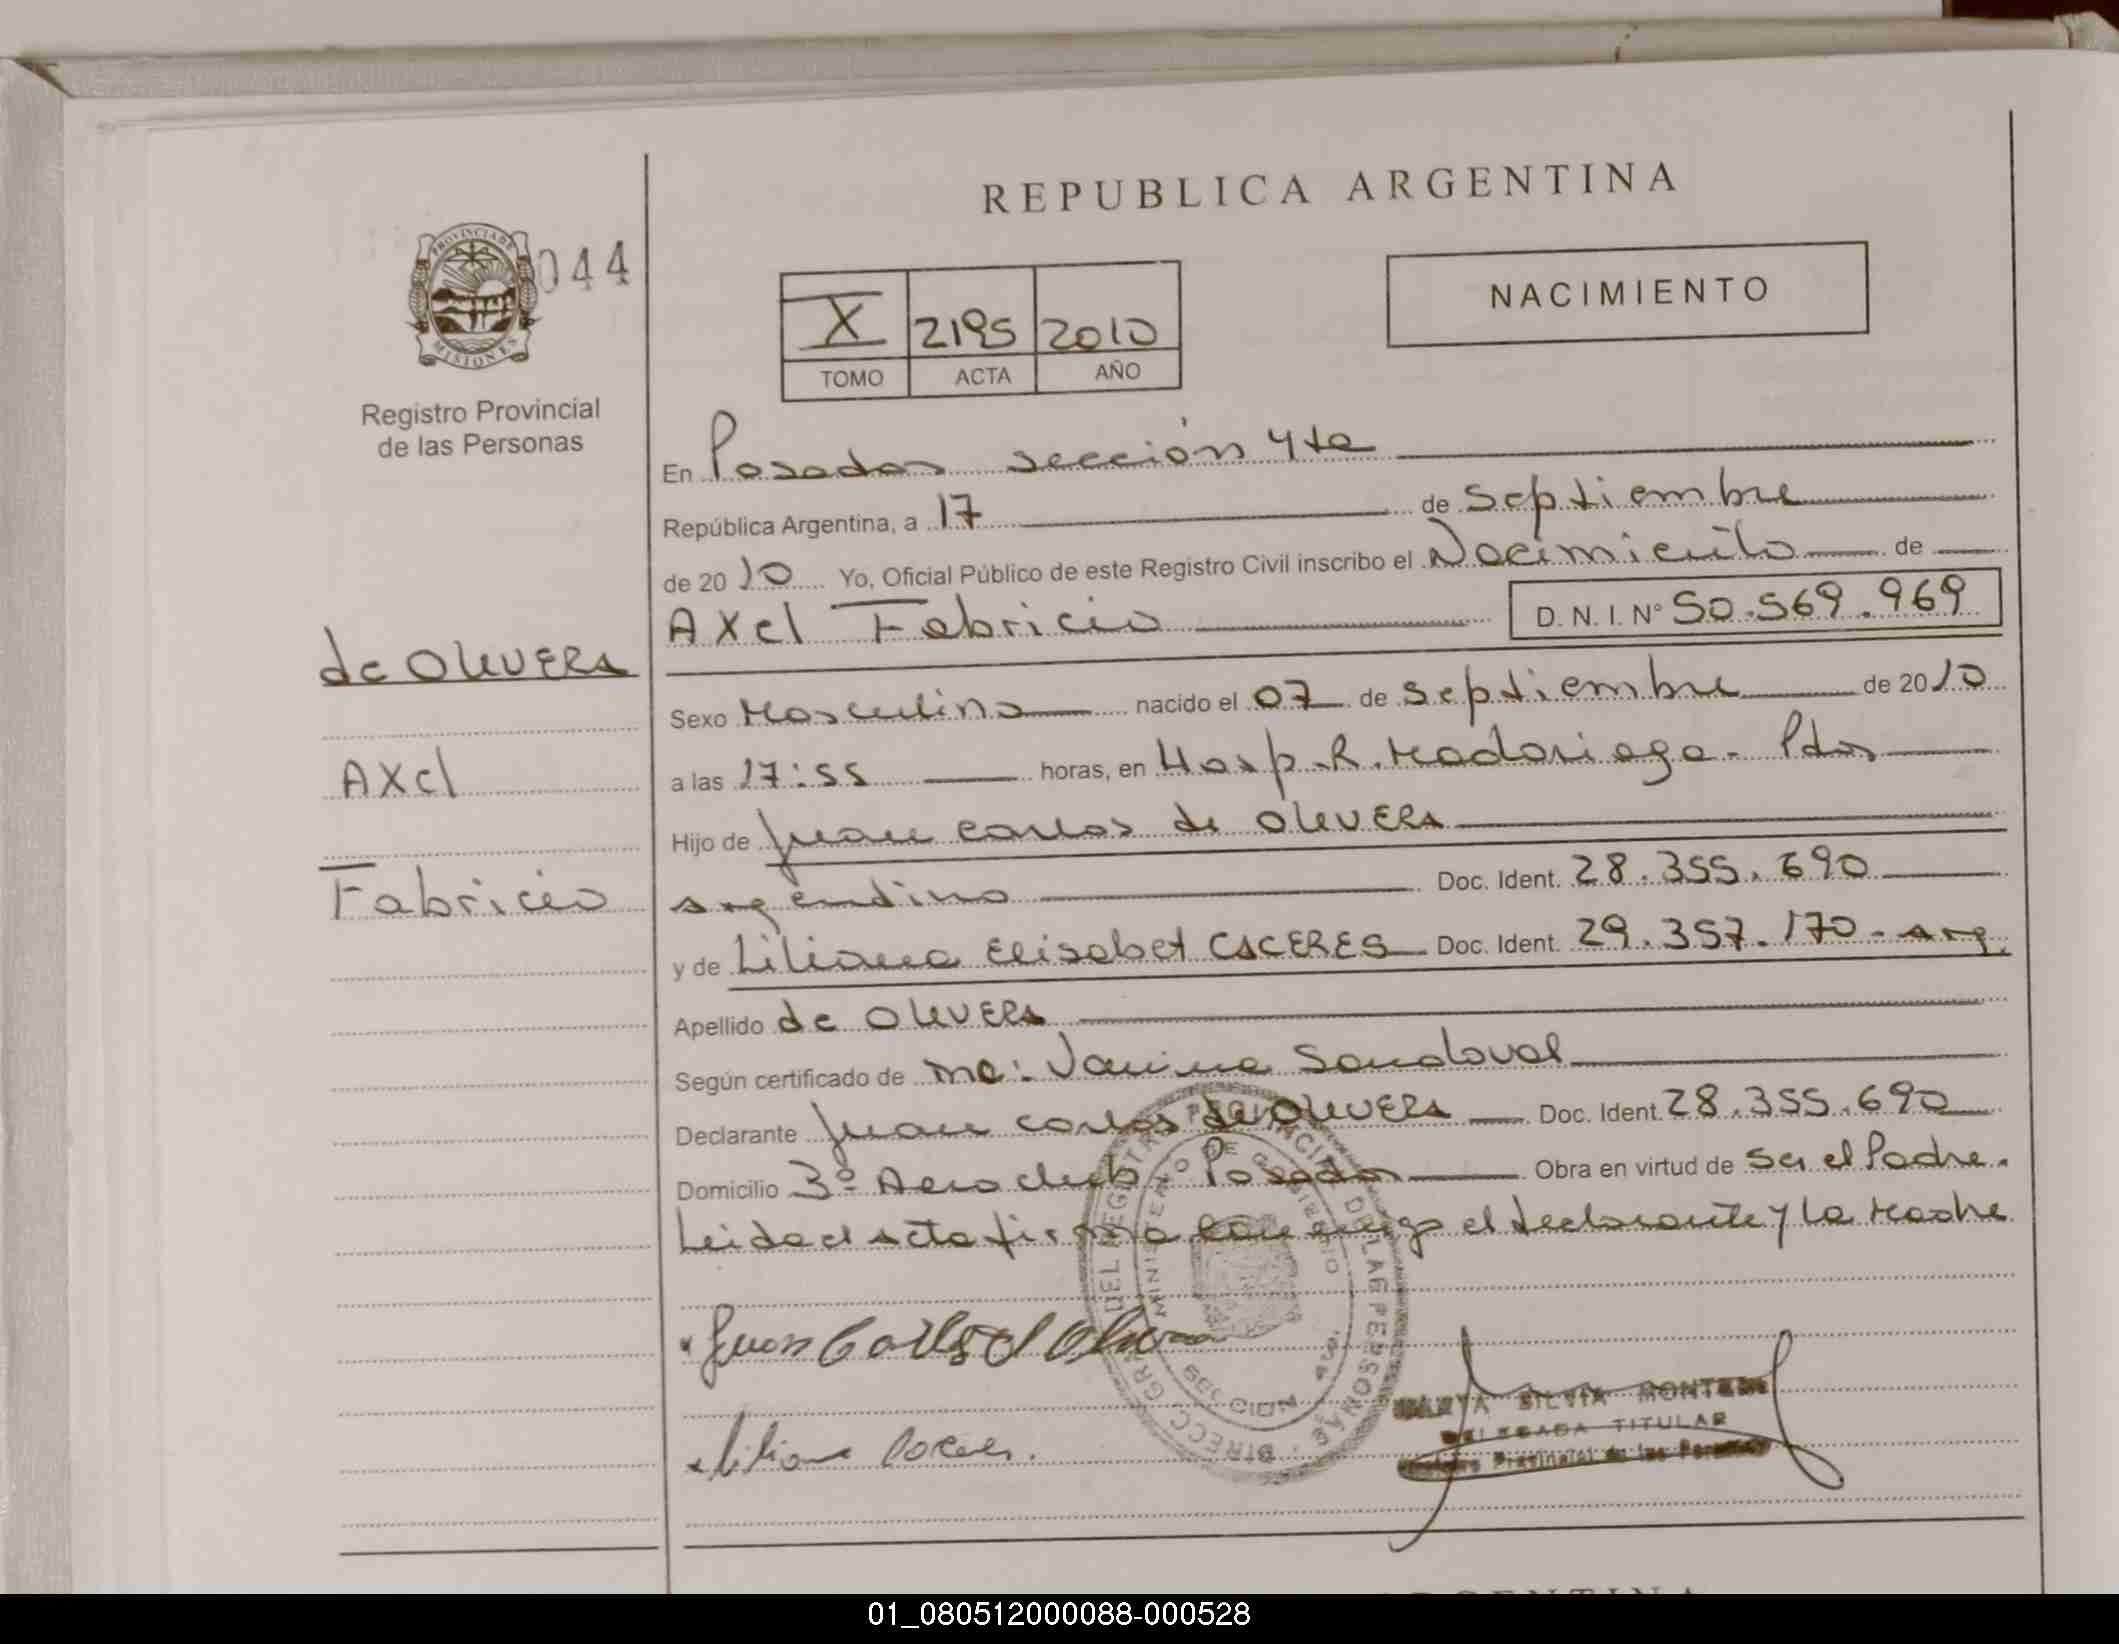 REPUBLICA ARGENTINA
PROVINCIA DE
MISIONES
044
Registro Provincial
de las Personas
X 2195 2010
TOMO ACTA AÑO
NACIMIENTO
En Posadas sección 4ta
República Argentina, a 17 de Septiembre
de 2010 Yo, Oficial Público de este Registro Civil inscribo el Nacimiento de
Axel Fabricio D. N. I. Nº 50.569.969
de OlivERA
Axel
Fabricio
Sexo Masculino nacido el 07 de Septiembre de 2010
a las 17:55 horas, en Hosp. R. Madariaga - Pdas
Hijo de Juan Carlos de OlivERA
argentino Doc. Ident. 28.355.690
y de Liliana Elisabet CACERES Doc. Ident. 29.357.170 - arg.
Apellido de OlivERA
Según certificado de Sandoval
Declarante Juan Carlos de OlivERA Doc. Ident. 28.355.690
Domicilio 3º Aeroclub - Posadas Obra en virtud de Ser el Padre.
Leida el acta firma conmigo el declarante y la Madre
Juan Carlos d Olivera
Liliana Caceres.
SILVIA
TITULAR
01_080512000088-000528